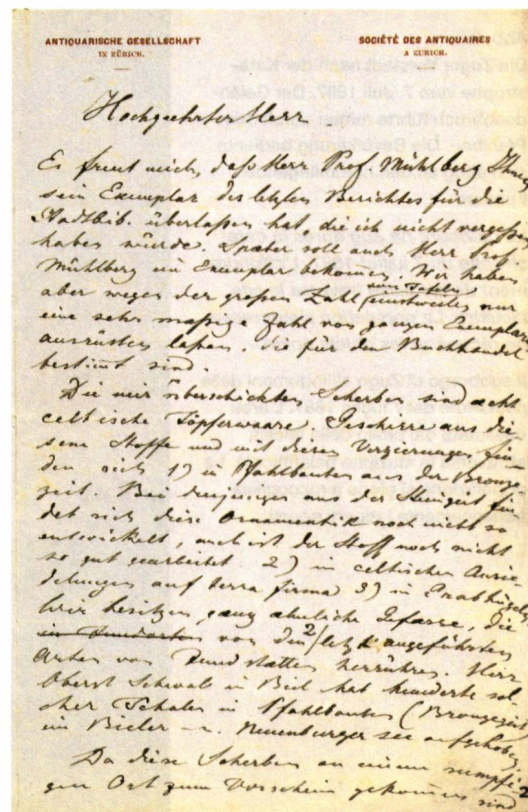 ANTIQUARISCHE GESELLSCHAFT
IN ZÜRICH.
SOCIÉTÉ DES ANTIQUAIRES
A ZURICH.
Hochgeehrter Herr
Es freut mich, dass Herr Prof. Mühlberg Ihnen
sein Exemplar des letzten Berichtes für die
Stadtbib. überlassen hat, die ich nicht vergessen
haben würde. Später soll auch Herr Prof.
Mühlberg ein Exemplar bekommen. Wir haben
aber wegen der grossen Zahl von Tafeln einstweilen nur
eine sehr mässige Zahl von ganzen Exemplaren
ausrüsten lassen, die für den Buchhandel
bestimt sind.
Die mir überschickten Scherben sind ächt
celtische Töpferwaare. Geschirre aus die
sem Stoffe und mit diesen Verzierungen fin
den sich 1) in Pfahlbauten aus der Bronze
zeit. Bei denjenigen aus der Steinzeit fin
det sich diese Ornamentik noch nicht so
entwickelt, auch ist der Stoff noch nicht
so gut gearbeitet 2) in celtischen Ansie
delungen auf terra firma 3) in Grabhügeln
Wir besitzen ganz ähnliche Gefässe, die
in von den 2 letzt angeführten
Arten von Fundstätten herrühren. Herr
Oberst Schwab in Biel hat hunderte sol
cher Schalen in Pfahlbauten (Bronzezeit)
im Bieler u. Neuenburger see aufgehoben
Da diese Scherben an einem sumpfi
gen Ort zum Vorschein gekommen sind